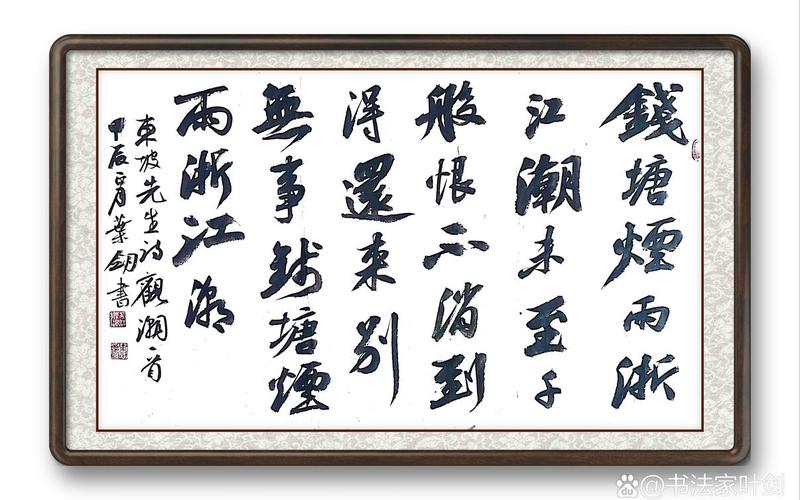 錢塘煙雨浙
江潮未至千
般恨不消到
得還来別
無事錢塘煙
雨浙江潮
東坡先生詩觀潮一首
甲辰正月葉劍書
Bai du @书法家叶劍